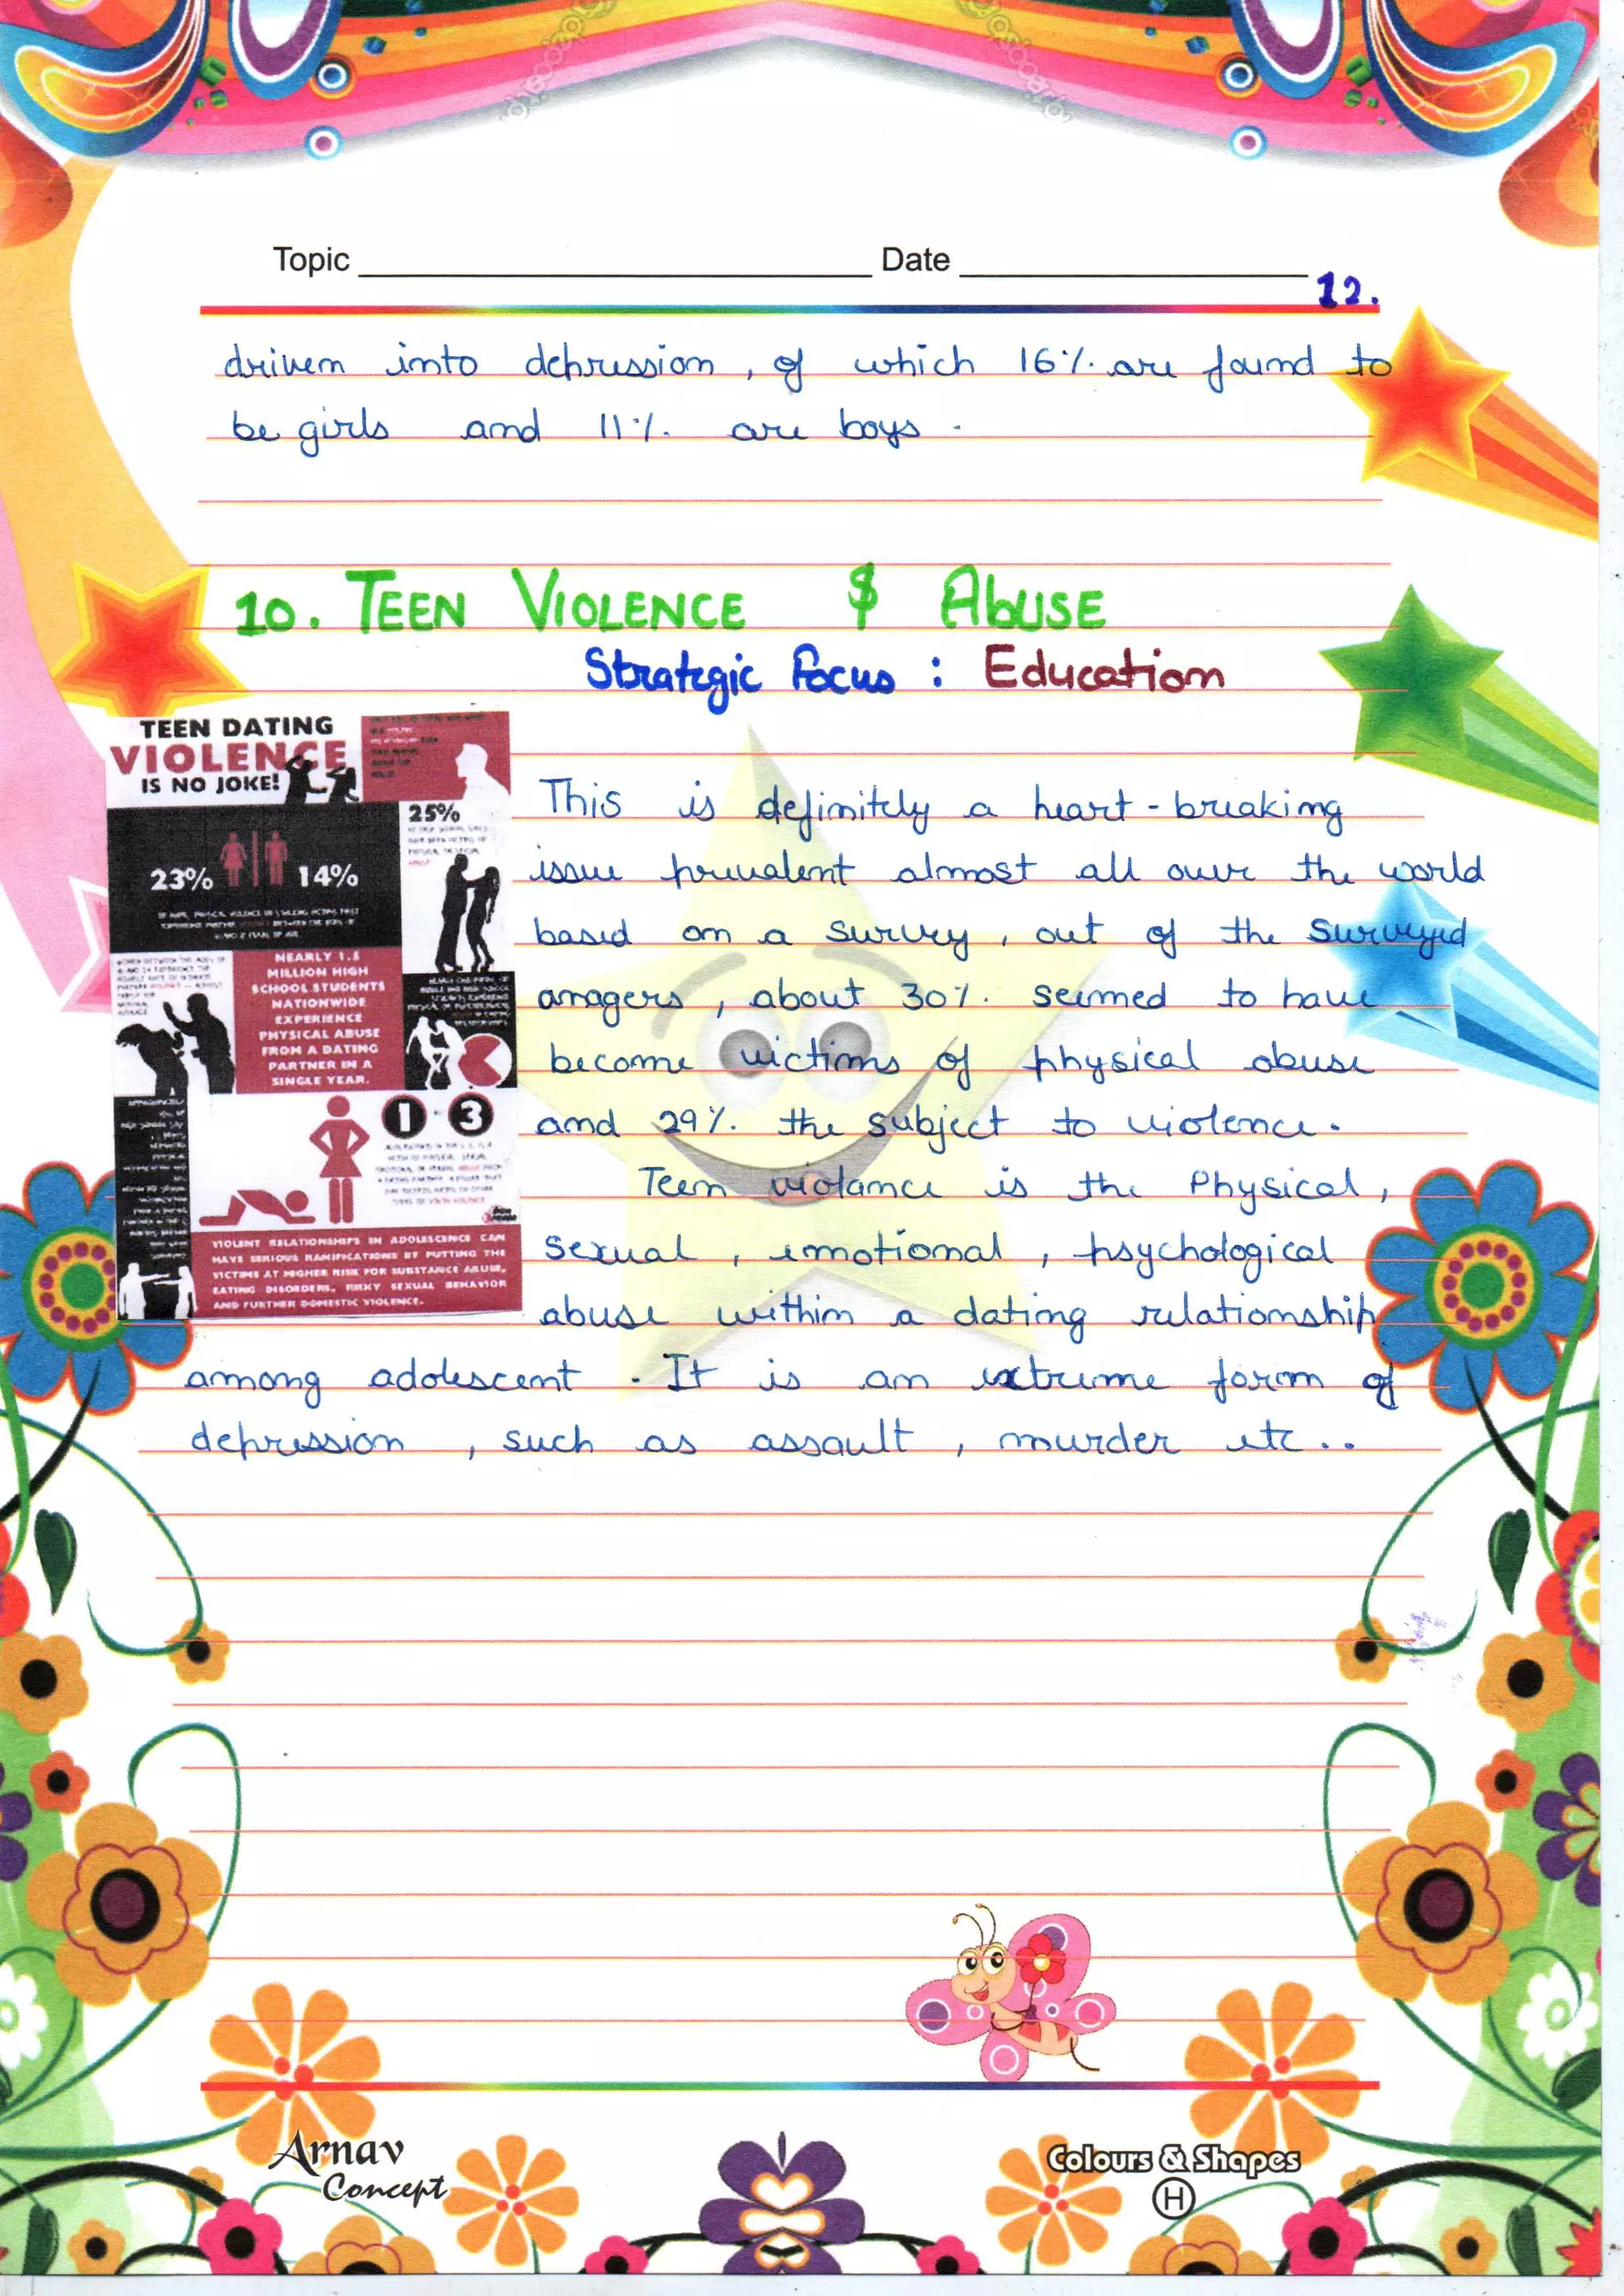 Topic Date
12.
driven into depression, of which 16%. are found to
be girls and 11%. are boys.
10. TEEN VIOLENCE & AbUSE
Strategic Focus : Education
TEEN DATING
VIOLENCE
IS NO JOKE!
25%
23% 14%
NEARLY 1.5
MILLION HIGH
SCHOOL STUDENTS
NATIONWIDE
EXPERIENCE
PHYSICAL ABUSE
FROM A DATING
PARTNER IN A
SINGLE YEAR.
1 3
VIOLENT RELATIONSHIPS IN ADOLESCENCE CAN
HAVE SERIOUS RAMIFICATIONS BY PUTTING THE
VICTIMS AT HIGHER RISK FOR SUBSTANCE ABUSE,
EATING DISORDERS, RISKY SEXUAL BEHAVIOR
AND FURTHER DOMESTIC VIOLENCE.
This is definitely a heart-breaking
issue prevalent almost all over the world
based on a survey, out of the surveyed
anagers, about 30%. seemed to have
become victims of physical abuse
and 29%. the subject to violence.
Teen violance is the Physical,
sexual, emotional, psychological
abuse within a dating relationship
among adolescent. It is an extreme form of
depression, such as assault, murder etc..
Arnav
Concept
Colours & Shapes
H